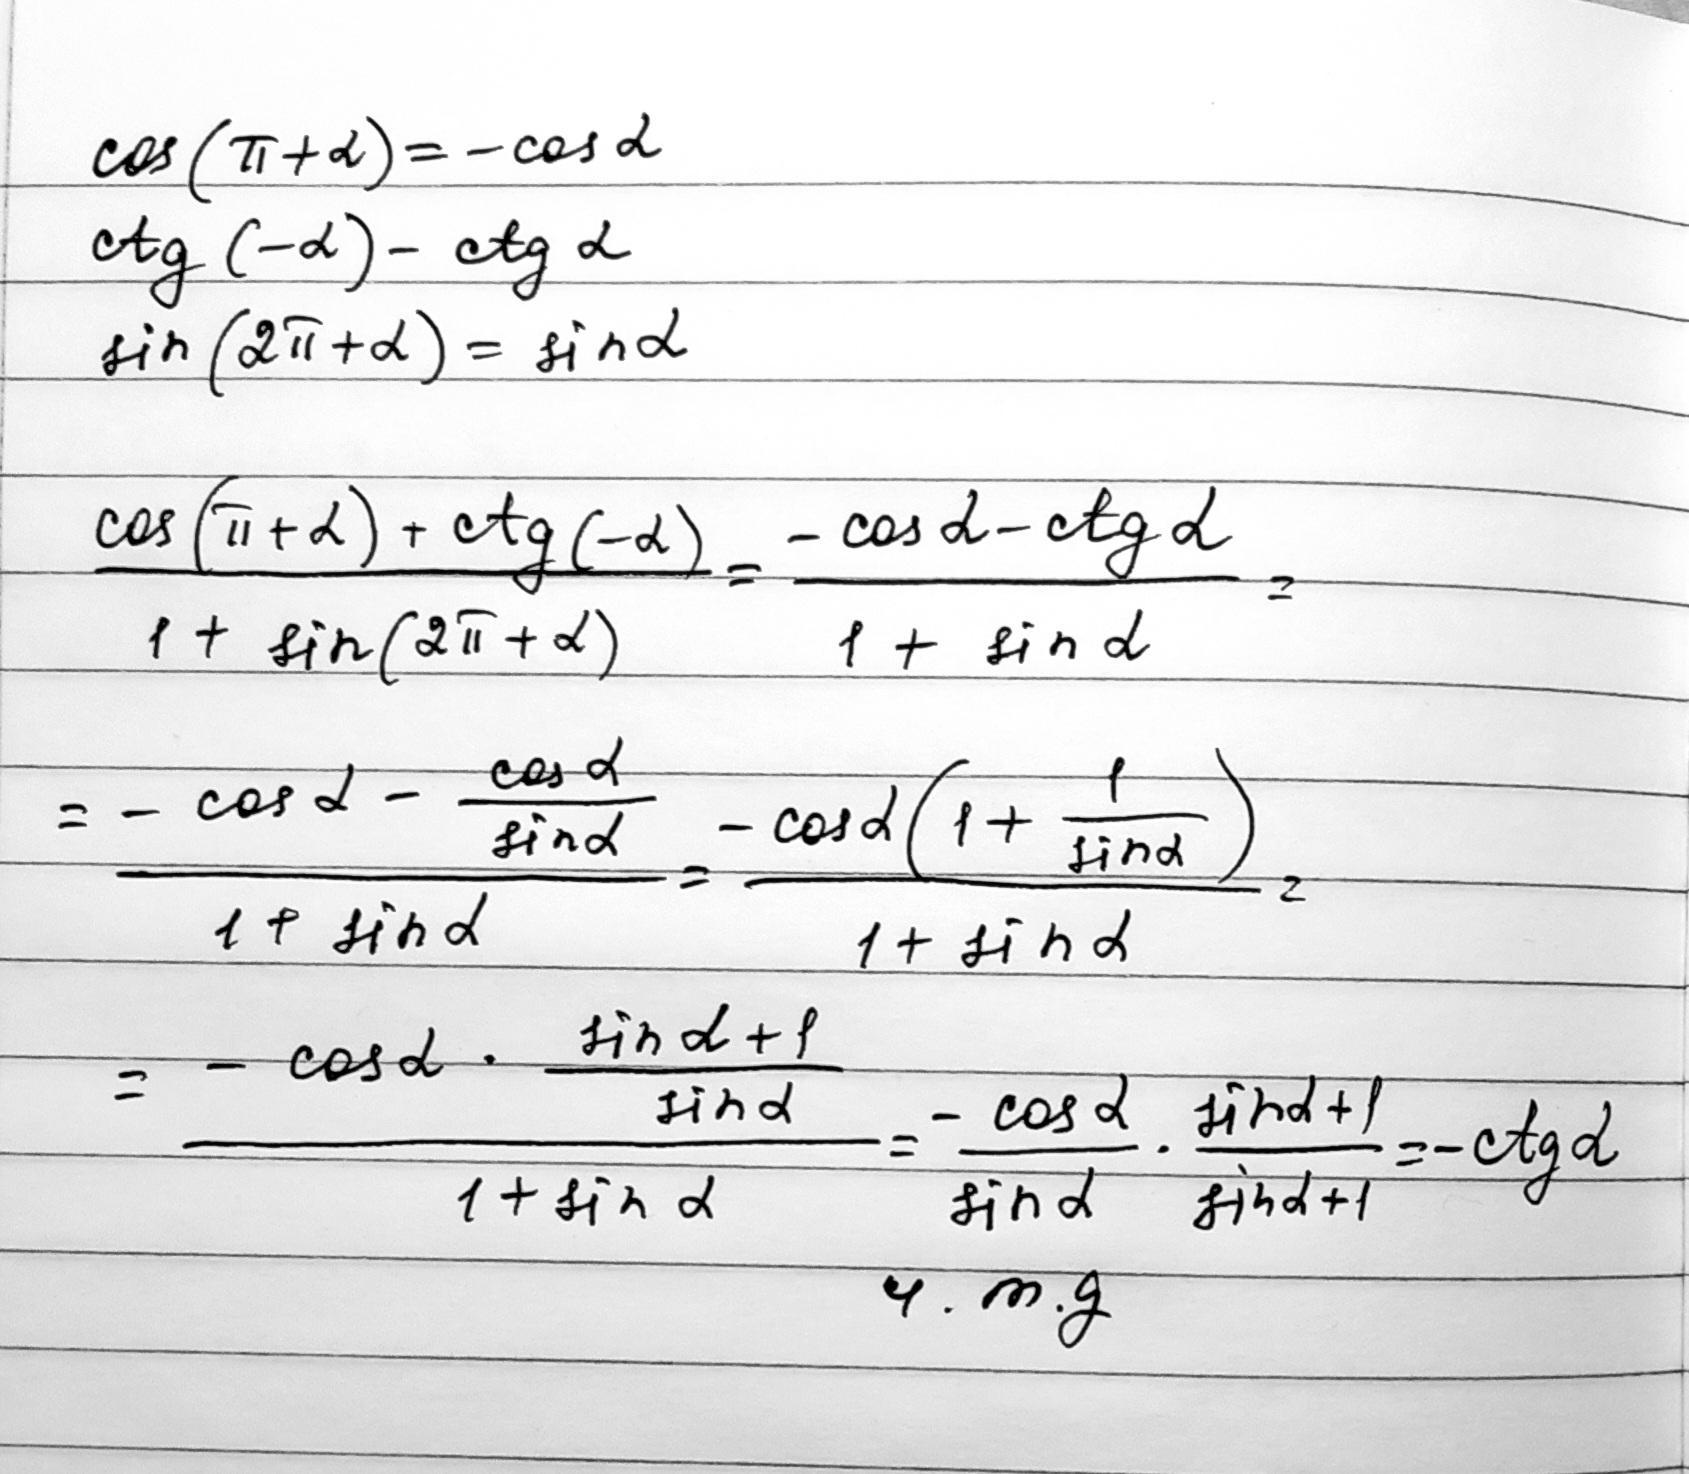 cos(π+α)=-cosα
ctg(-α)- ctgα
sin(2π+α)= sinα
(cos(π+α)+ctg(-α))/(1+ sin(2π+α)) = (-cosα-ctgα)/(1+ sinα) =
= (-cosα - cosα/sinα)/(1+ sinα) = (-cosα(1+ 1/sinα))/(1+ sinα) =
= (-cosα · (sinα+1)/sinα)/(1+sinα) = -cosα/sinα · (sinα+1)/(sinα+1) =-ctgα
ч. т.д